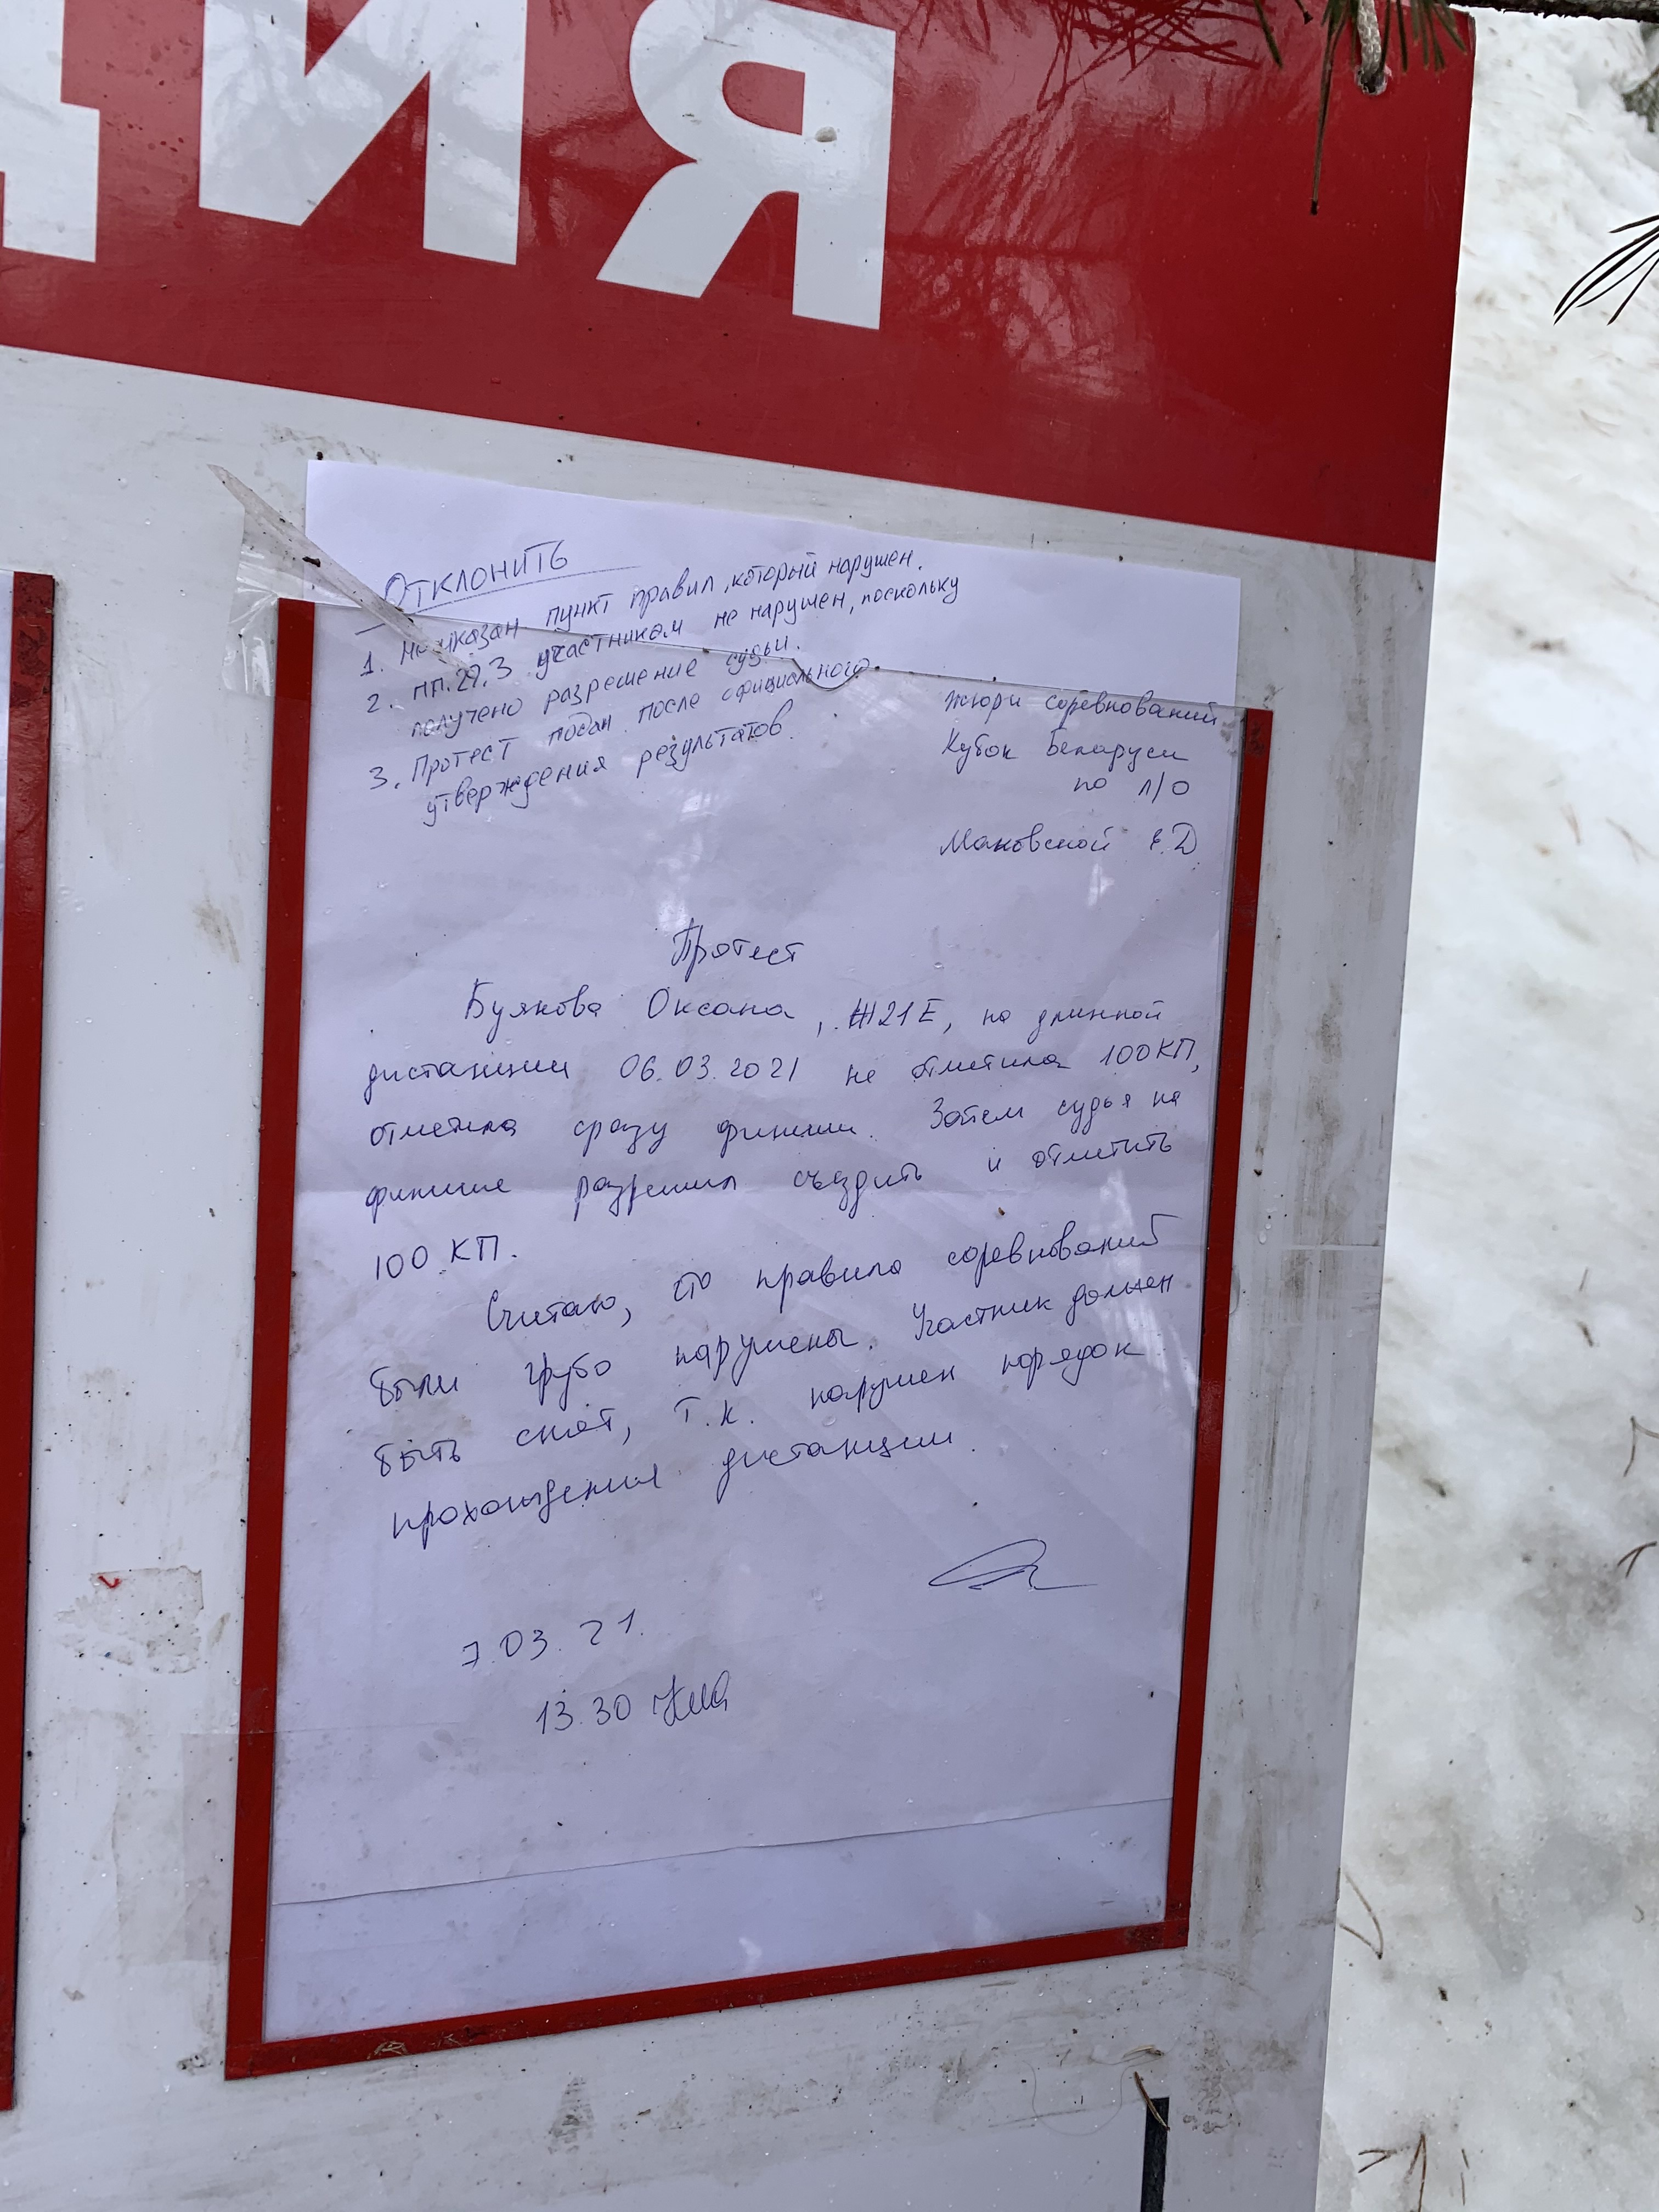 ЦИЯ
Отклонить
1. Не указан пункт правил, который нарушен.
2. пп.29.3 участником не нарушен, поскольку
получено разрешение судьи.
3. Протест подан после официального
утверждения результатов.
Жюри соревнований
Кубок Беларуси
по л/о
Маковской Е.Д.
Протест
Буякова Оксана, Ж21Е, на длинной
дистанции 06.03.2021 не отметила 100КП,
отметила сразу финиш. Затем судья на
финише разрешил съездить и отметить
100 КП.
Считаю, что правила соревнований
были грубо нарушены. Участник должен
быть снят, т.к. нарушен порядок
прохождения дистанции.
7.03.21.
13.30